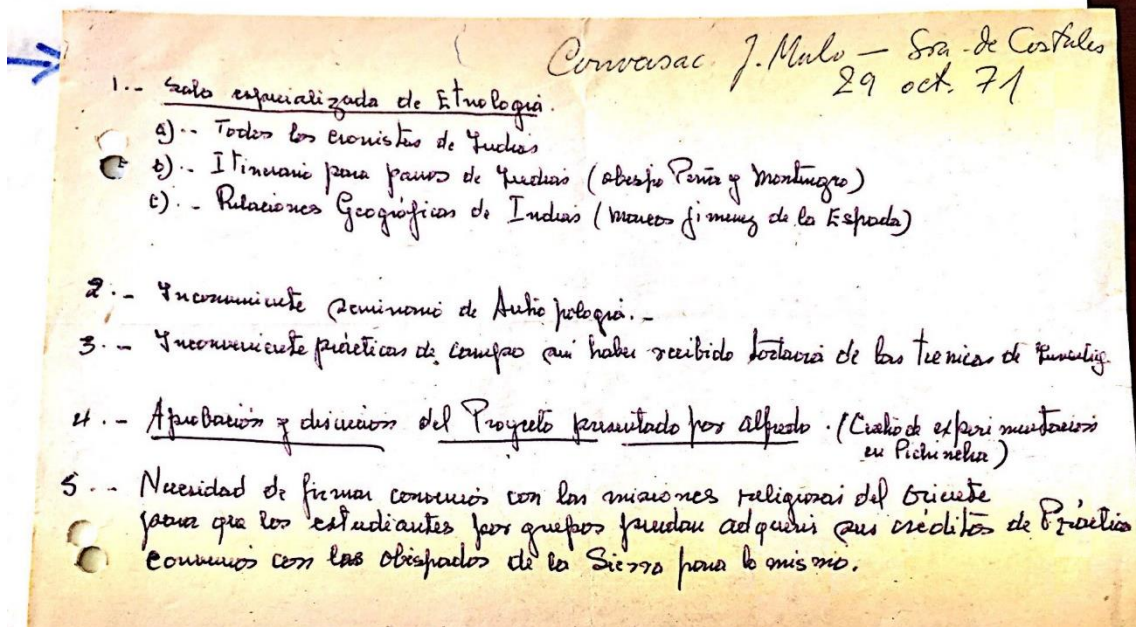 Conversac. J. Malo — Sra. de Costales
29 oct. 71
1.- Sala especializada de Etnología.
a).- Todos los cronistas de Indias
b).- Itinerario para párrocos de Indios (obispo Peña y Montenegro)
c).- Relaciones Geográficas de Indias (Marcos Jimenez de la Espada)
2.- Inconveniente seminario de Antropología.-
3.- Inconveniente prácticas de campo sin haber recibido todavía de las tecnicas de Investig.
4.- Aprobación y discusión del Proyecto presentado por Alfredo. (Centro de experimentación
en Pichincha)
5.- Necesidad de firmar convenios con las misiones religiosas del Oriente
para que los estudiantes por grupos puedan adquirir sus créditos de Práctica
convenios con los obispados de la Sierra para lo mismo.